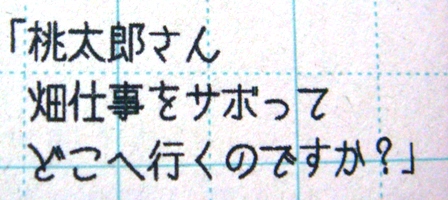 「桃太郎さん
畑仕事をサボって
どこへ行くのですか?」